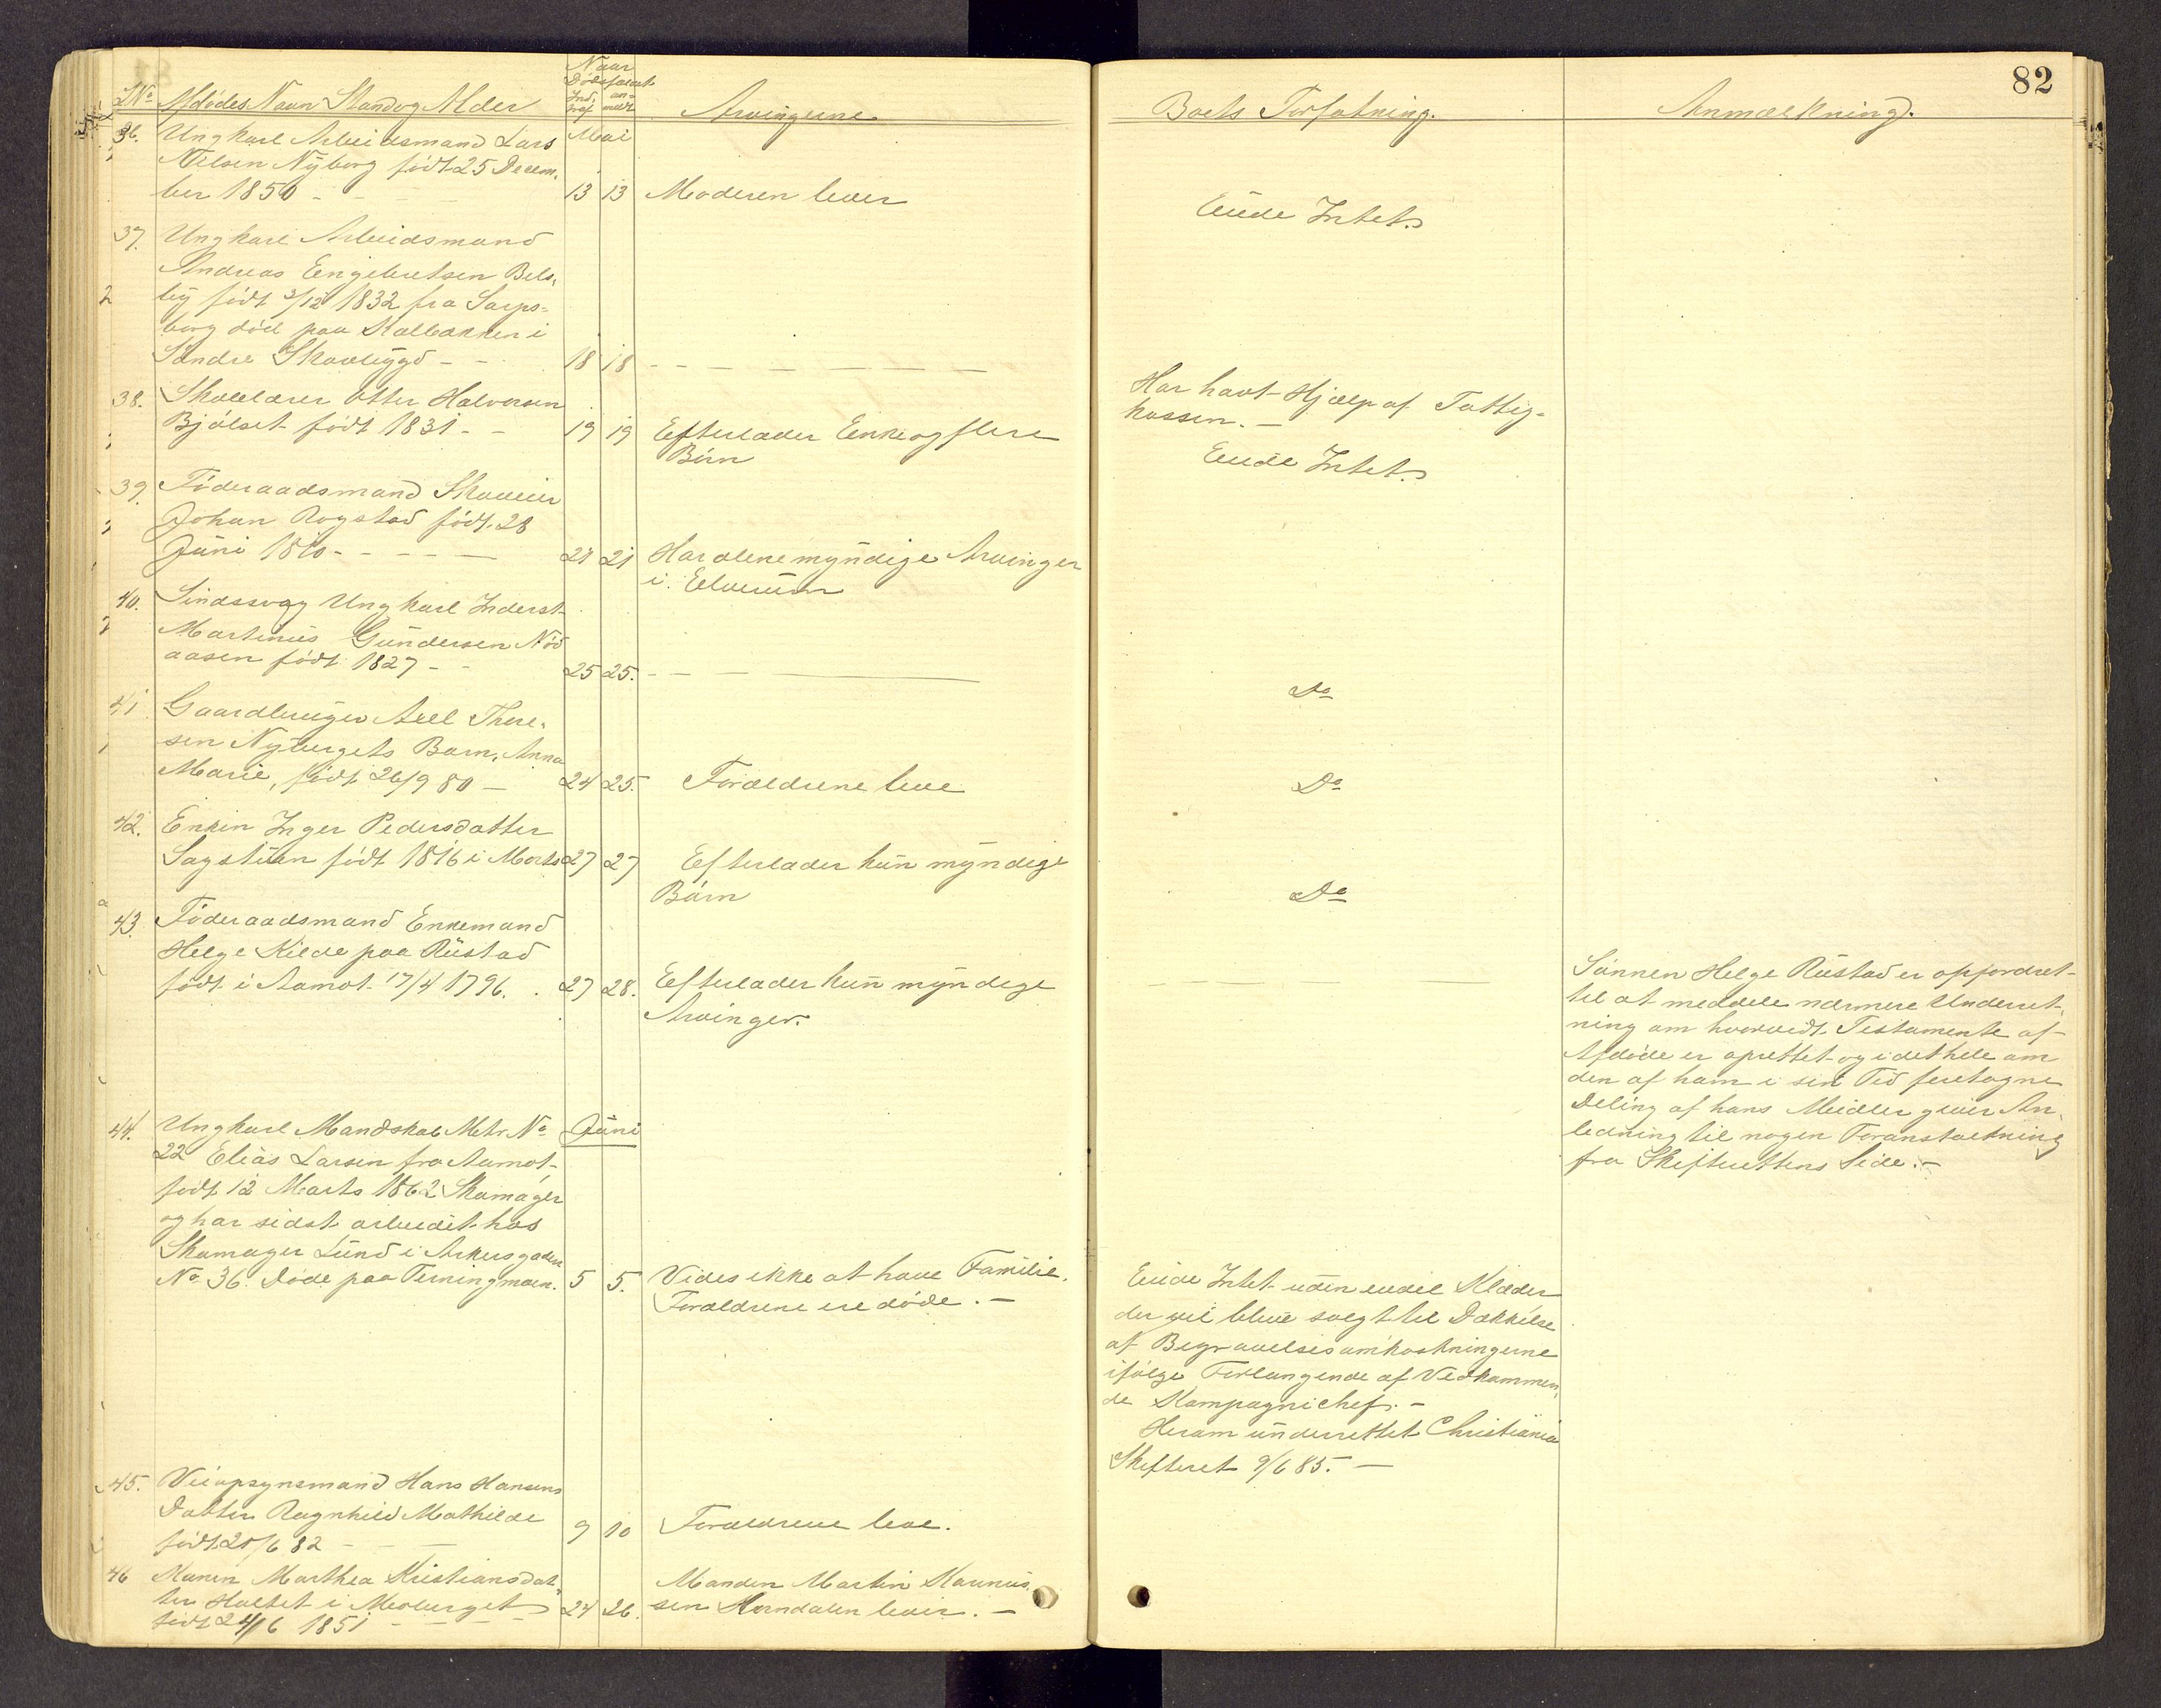 82
Naar
Dødsfaldet
LNo Afdødes Navn Stand og Alder Ind, traf an- meldt Arvingerne
Boets Forfatning. Anmærkning.
36. Ungkarl Arbeidsmand Lars Mai
Nilsen Nyborg født 25 Decem,
ber 1850 - 13 13 Moderen lever
Eiede Intet.
37. Ungkarl Arbeidsmand
Andreas Engebretsen Bels,
født 3/12 1832 fra Sarps-
borg død paa Kalbakken i
Søndre Skovbygd - - 18 18 - - - - -
Har havt Hjælp af Fattig-
kassen. -
38. Skolelærer Otter Halvorsen
Bjølset født 1831 - - 19 19 Efterlader Enke og flere
Børn
Eiede Intet.
39. Føderaadsmand Skoveier
Johan Rogstad født 28
Juni 1810 - - - 21 21 Har alene myndige Arvinger
i Elverum
40. Sindssvag Ungkarl Inderst
Martinus Gundersen Nød
aasen født 1827 - - 25 25. - - -
Do
41 Gaardbruger Axel There,
sen Nybergets Barn, Anna
Marie, født 26/9 80 - 24 25. Forældrene leve
Do
42. Enken Inger Pedersdatter
Sagstuen født 1816 i Marts 27 27 Efterlader kun myndige
Børn
Do
43. Føderaadsmand Enkemand
Helge Kilde paa Rustad
født i Aamot 17/4 1796. 27 28. Efterlader kun myndige
Arvinger.
Sønnen Helge Rustad er opfordret
til at meddele nærmere Underret,
ning om hvorvidt Testamente af
Afdøde er oprettet og i det hele om
den af ham i sin Tid foretagne
Deling af hans Midler giver An,
ledning til nogen Foranstaltning
fra Skifterettens Side. -
44. Ungkarl Mandskab Mtr. No Juni
22 Elias Larsen fra Aamot,
født 12 Marts 1862 Skomager
og har sidst arbeidet hos
Skomager Lund i Akersgaden
No 36. Døde paa Terningmoen. 5 5. Vides ikke at have Familie.
Forældrene ere døde. -
Eiede Intet uden endel Klæder
der vil blive solgt til Dækkelse
af Begravelsesomkostningerne
ifølge Forlangende af Vedkommen,
de Kompagnichef. -
Herom underrettet Christiania
Skifteret 9/6 85. -
45. Veiopsynsmand Hans Hansens
Datter Ragnhild Mathilde
født 20/6 82 - - 9 10 Forældrene leve.
46 Konen Marthea Kristiansdat,
ter Holtet i Moberget
født 24/6 1851 - - 24 26. Manden Martin
sen Korndalen lever. -